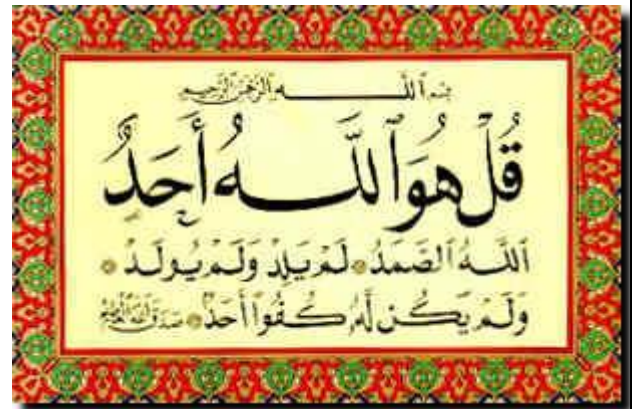 بِسْمِ ٱللَّهِ ٱلرَّحْمَٰنِ ٱلرَّحِيمِ
قُلْ هُوَ ٱللَّهُ أَحَدٌ
ٱللَّهُ ٱلصَّمَدُ ۝ لَمْ يَلِدْ وَلَمْ يُولَدْ ۝
وَلَمْ يَكُن لَّهُۥ كُفُوًا أَحَدٌ ۝ صَدَقَ ٱللَّهُ ٱلْعَظِيمُ